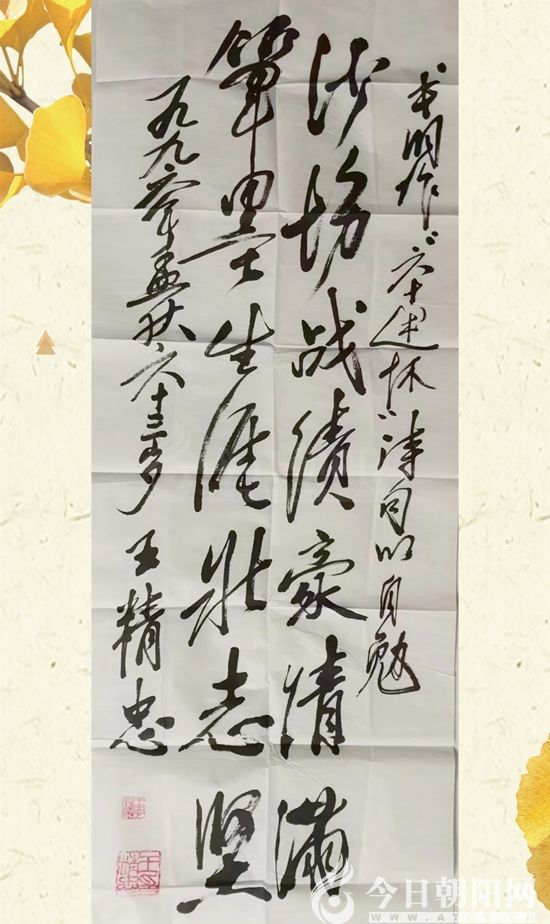 书旧作“六十述怀”诗句以自勉
沙场战绩豪情满
笔墨生涯壮志坚
一九九六年孟秋六十三岁 王精忠
今日朝阳网